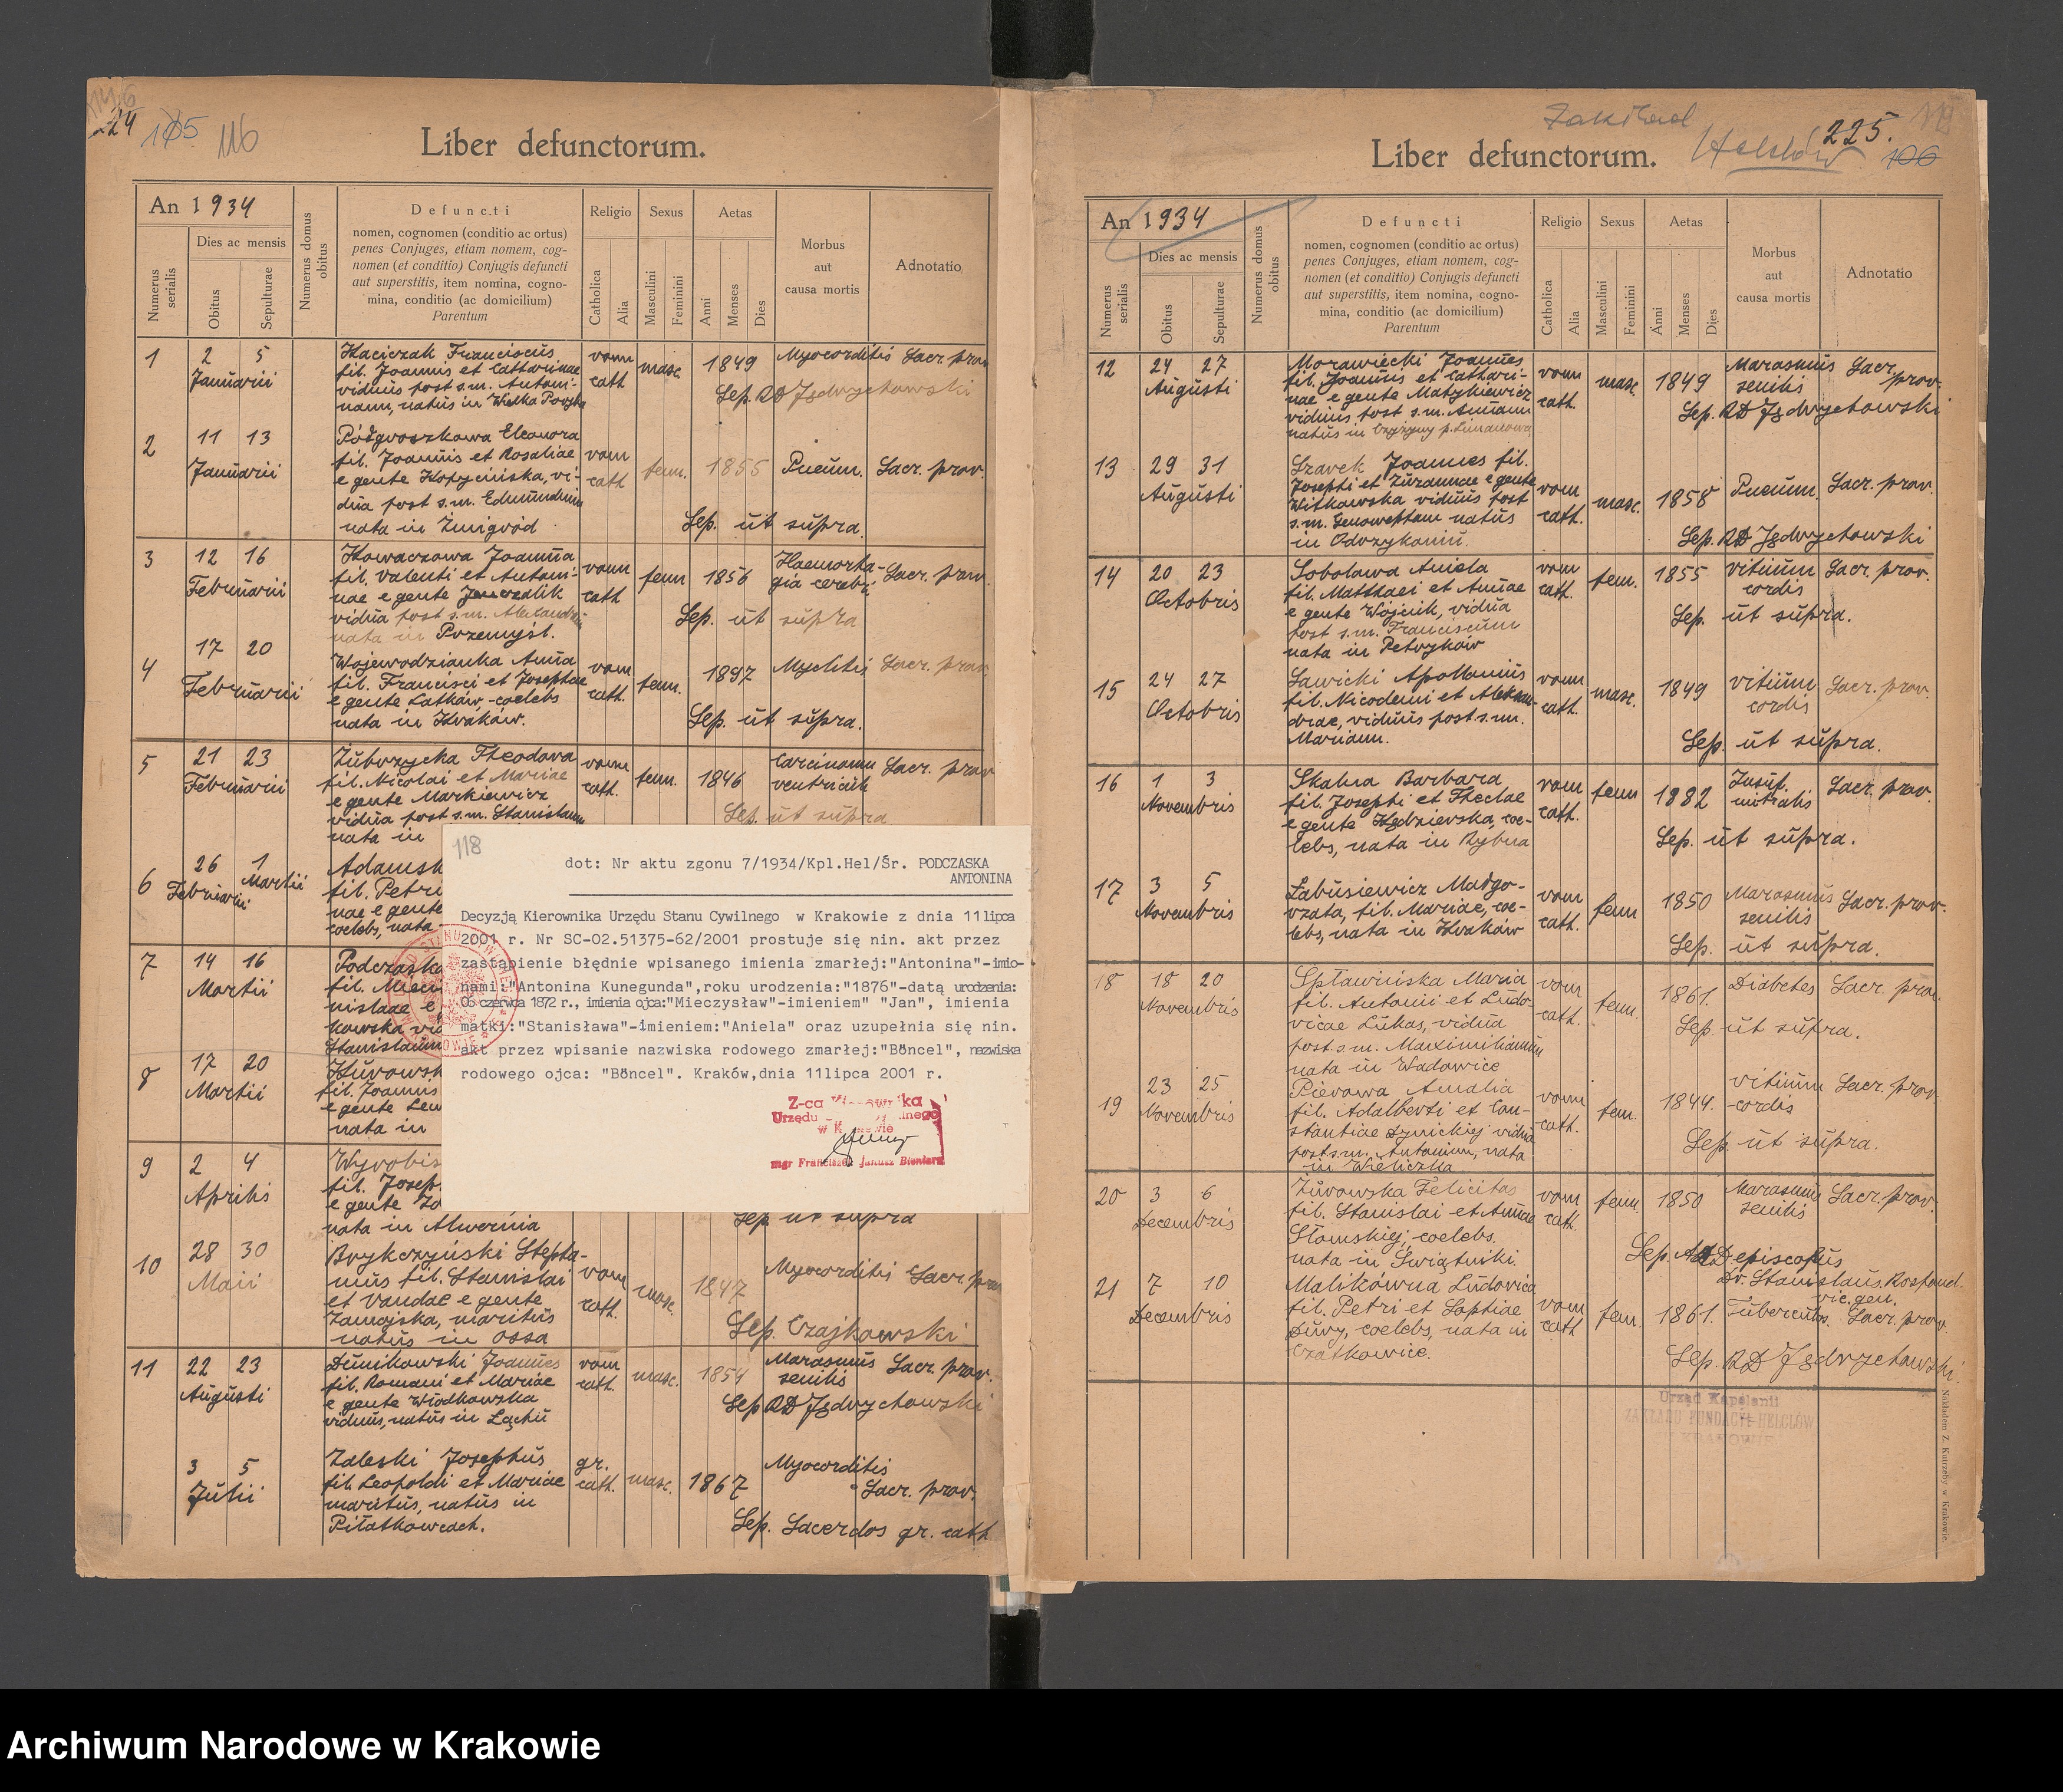 24 105 116
Liber defunctorum.
An 1934
Numerus serialis
Dies ac mensis
Obitus
Sepulturae
Numerus domus obitus
Defuncti
nomen, cognomen (conditio ac ortus)
penes Conjuges, etiam nomem, cog-
nomen (et conditio) Conjugis defuncti
aut superstitis, item nomina, cogno-
mina, conditio (ac domicilium)
Parentum
Religio
Catholica
Alia
Sexus
Masculini
Feminini
Aetas
Anni
Menses
Dies
Morbus
aut
causa mortis
Adnotatio
1 2 5 Januarii
Franciscus
fil. Joannis et Catharinae
viduus post s.m. Antoni-
nam, natus in Wielka Poręba
rom cath masc. 1849 Myocorditis Sacr. prov
Sep. RD Jędrychowski
2 11 13 Januarii
Eleonora
fil. Joannis et Rosaliae
e gente Kopycińska, vi-
dua post s.m. Edmundum
nata in Żmigród
rom cath fem. 1855 Pneum. Sacr. prov.
Sep. ut supra.
3 12 16 Februarii
Kowaczowa Joanna
fil. Valenti et Antoni-
nae e gente
vidua post s.m. Alexandrum
nata in Przemyśl.
rom cath fem 1856 Haemorha-
gia cerebri Sacr. prov.
Sep. ut supra
4 17 20 Februarii
Wojewodzianka Anna
fil. Francisci et Josephae
e gente Latków, coelebs
nata in Kraków.
rom cath. fem. 1897 Sacr. prov
Sep. ut supra.
5 21 23 Februarii
Zubrzycka Theodora
fil. Nicolai et Mariae
e gente Markiewicz
vidua post s.m. Stanislaum
nata in
rom cath. fem. 1846 Carcinoma
ventriculi Sacr. prov
Sep. ut supra
6 26 Februarii 1 Martii
Adamsk
fil. Petri
nae e gente
coelebs, nata
7 14 16 Martii
Podczaska
fil. Miecz
nislaae e
kowska vid
Stanislaum
8 17 20 Martii
Kurowsk
fil. Joannis
e gente Lew
nata in
9 2 4 Aprilis
Wyrobis
fil. Josep
e gente
nata in Alwernia
Sep. ut supra
118
dot: Nr aktu zgonu 7/1934/Kpl.Hel/Śr. PODCZASKA
ANTONINA
Decyzją Kierownika Urzędu Stanu Cywilnego w Krakowie z dnia 11lipca
2001 r. Nr SC-02.51375-62/2001 prostuje się nin. akt przez
zastąpienie błędnie wpisanego imienia zmarłej:"Antonina"-imio-
nami:"Antonina Kunegunda",roku urodzenia:"1876"-datą urodzenia:
06 czerwca 1872 r., imienia ojca:"Mieczysław"-imieniem" "Jan", imienia
matki:"Stanisława"-imieniem:"Aniela" oraz uzupełnia się nin.
akt przez wpisanie nazwiska rodowego zmarłej:"Böncel", nazwiska
rodowego ojca: "Böncel". Kraków,dnia 11lipca 2001 r.
Z-ca Kierownika
Urzędu
w Krakowie
mgr Franciszek Janusz Bieniarz
10 28 30 Maii
Brykczyński Stepha-
nus fil. Stanislai
et Vandae e gente
Zamojska, maritus
natus in Ossa
rom cath. masc. 1847 Myocorditis Sacr. prov
Sep. Czajkowski
11 22 23 Augusti
Dunikowski Joannes
fil. Romani et Mariae
e gente Włodkowska
viduus, natus in
rom cath. masc. 1854 Marasmus
senilis Sacr. prov.
Sep RD Jędrychowski
3 5 Julii
Zaleski Josephus
fil. Leopoldi et Mariae
maritus, natus in
Piłatkowcach.
gr. cath. masc. 1867 Myocorditis
Sacr. prov.
Sep. Sacerdos gr. cath
Zakład
Helclów 225. 106
Liber defunctorum.
An 1934
Numerus serialis
Dies ac mensis
Obitus
Sepulturae
Numerus domus obitus
Defuncti
nomen, cognomen (conditio ac ortus)
penes Conjuges, etiam nomem, cog-
nomen (et conditio) Conjugis defuncti
aut superstitis, item nomina, cogno-
mina, conditio (ac domicilium)
Parentum
Religio
Catholica
Alia
Sexus
Masculini
Feminini
Aetas
Anni
Menses
Dies
Morbus
aut
causa mortis
Adnotatio
12 24 27 Augusti
Morawiecki Joannes
fil. Joannis et Cathari-
nae e gente Matykiewicz
viduus post s.m. Annam
natus in
rom cath. masc. 1849 Marasmus
senilis Sacr. prov.
Sep. RD Jędrychowski
13 29 31 Augusti
Szarek Joannes fil.
Josephi et Zuzannae e gente
Witkowska viduus post
s.m. Genowepham natus
in Odrzykoniu.
rom cath. masc. 1858 Pneum. Sacr. prov.
Sep. RD Jędrychowski
14 20 23 Octobris
Sobolowa Aniela
fil. Matthaei et Annae
e gente Wójcik, vidua
post s.m. Franciscum
nata in Pstrążków
rom cath. fem. 1855 vitium
cordis Sacr. prov.
Sep. ut supra.
15 24 27 Octobris
Sawicki Apollonius
fil. Nicodemi et Aleksan-
drae, viduus post s.m.
Mariam.
rom cath. masc. 1849 vitium
cordis Sacr. prov.
Sep. ut supra.
16 1 3 Novembris
Skalna Barbara
fil. Josephi et Theclae
e gente Kędzierska, coe-
lebs, nata in Rybna
rom cath. fem 1882 Insuf.
mitralis Sacr. prov.
Sep. ut supra.
17 3 5 Novembris
Łabusiewicz Małgo-
rzata, fil. Mariae, coe-
lebs, nata in Kraków
rom cath. fem 1850 Marasmus
senilis Sacr. prov.
Sep. ut supra.
18 18 20 Novembris
Spławińska Maria
fil. Antonii et Ludo-
vicae Lukas, vidua
post s.m. Maximilianum
nata in Wadowice
rom cath. fem. 1861. Diabetes Sacr. prov.
Sep. ut supra.
19 23 25 Novembris
Pierowa Amalia
fil. Adalberti et Con-
stantiae Dynickiej vidua
post s.m. Antonium, nata
in Wieliczka
rom cath. fem. 1844. vitium
cordis Sacr. prov.
Sep. ut supra.
20 3 6 Decembris
Żurowska Felicitas
fil. Stanislai et Annae
Słomskiej, coelebs.
nata in Świątniki.
rom cath. fem. 1850 Marasmus
senilis Sacr. prov.
Sep. episcopus
Dr. Stanislaus Rospond
vic. gen.
21 7 10 Decembris
Malikówna Ludovica
fil. Petri et Sophiae
Dury, coelebs, nata in
Czatkowice.
rom cath fem. 1861. Tubercul. Sacr. prov
Sep. RD Jędrychowski.
Urząd Kapelanii
ZAKŁADU FUNDACYI HELCLÓW
W KRAKOWIE
Nakładem Z. Kutrzeby w Krakowie.
Archiwum Narodowe w Krakowie